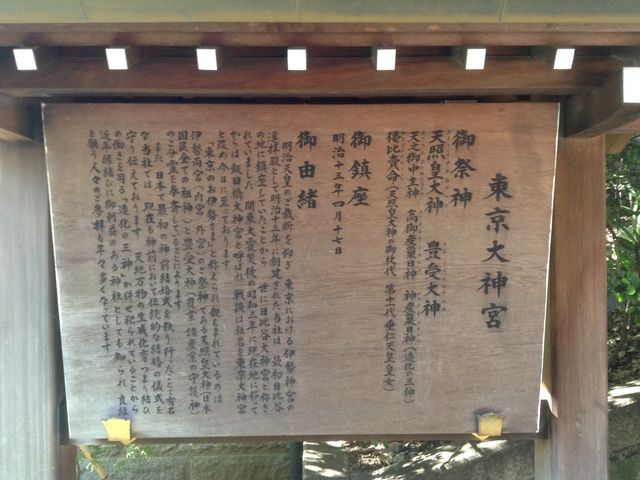 東京大神宮
御祭神
天照皇大神　豊受大神
天之御中主神　高御産巣日神　神産巣日神（造化の三神）
倭比賣命（天照皇大神の御杖代　第十一代垂仁天皇皇女）
御鎮座
明治十三年四月十七日
御由緒
明治天皇のご裁断を仰ぎ　東京における伊勢神宮の
遙拝殿として明治十三年に創建された当社は　最初日比谷
の地に鎮座していたことから　世に日比谷大神宮と称さ
れていました　関東大震災後の昭和三年に現在地に移って
からは飯田橋大神宮と呼ばれ　戦後は社名を東京大神宮
と改め今日に至っております
「東京のお伊勢さま」と称され親しまれているのは
伊勢両宮（内宮　外宮）のご祭神である天照皇大神（日本
国民全ての祖神）と豊受大神（農業　諸産業の守護神）
のご分霊を奉斎していることによります
また　日本で最初の神前結婚式を執り行ったことで有名
な当社では　現在も神前において伝統的な結婚の儀式を
守り伝えております　天地万物の生成化育つまり結び
の働きを司る「造化の三神」が併せ祀られていることから
近年縁結びに御利益のある神社としても知られ　良縁
を願う人々のご参拝も年々多くなっています